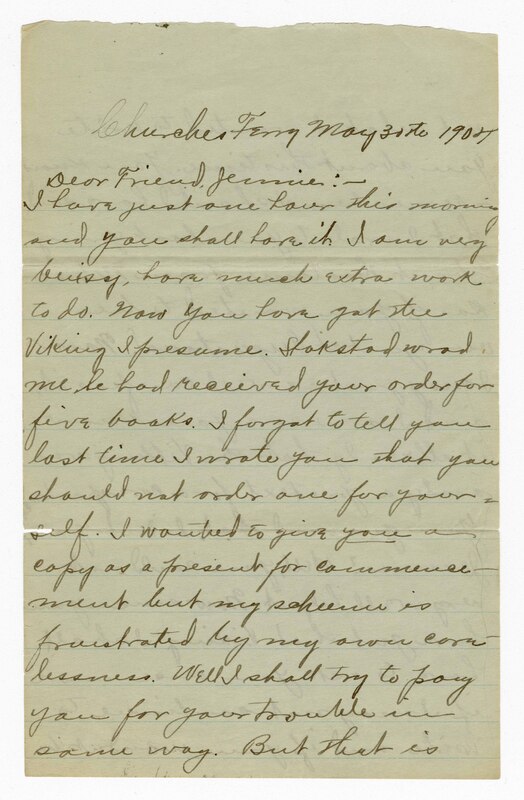 Churches Ferry May 30th 1904
Dear Friend Jennie:-
I have just one hour this morning
and you shall have it. I am very
beisy, have much extra work
to do. Now you have got the
Viking I presume. Stakstad wrad
me, he had received your order for
five books. I forgot to tell you
last time I wrate you that you
should not order one for your=
self. I wanted to give you a
copy as a present for commence-
ment but my scheem is
frustrated by my own care-
lessness. Well I shall try to pay
you for your trouble in
some way. But that is